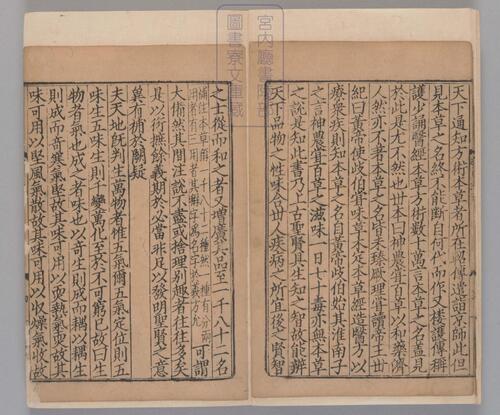 宮内廳書陵部
圖書寮文庫藏
天下通知方術本草者所在軺傳遣詣京師此但
見本草之名終未能斷自何代而作又樓護傳稱
護少誦醫經本草方術數十萬言本草之名蓋見
於此是尤不然也丗本曰神農甞百草以和藥濟
人然亦不著本草之名皆未臻厥理嘗讀帝王丗
紀曰黃帝使歧伯甞味草木定本草經造醫方以
療衆疾則知本草之名自黃帝歧伯始其淮南子
之言神農甞百草之滋味一日七十毒亦無本草
之說是知此書乃上古聖賢具生知之智故能辨
天下品物之性味合丗人疾病之所宜後之賢智
之士從而和之者又增廣其品至一千八十二名
補注本草稱一千八十二種然一種有分兩
用者有三用者其種字爲名字於義方允
可謂
大備然其間注說不盡或捨理別趣者往往多矣
是以衍摭餘義期於必當非足以發明聖賢之意
冀有補於闕疑
夫天地旣判生萬物者惟五氣爾五氣定位則五
味生五味生則千變萬化至於不可窮已故曰生
物者氣也成之者味也以奇生則成而耦以耦生
則成而奇寒氣堅故其味可用以耎熱氣耎故其
味可用以堅風氣散故其味可用以收燥氣收故